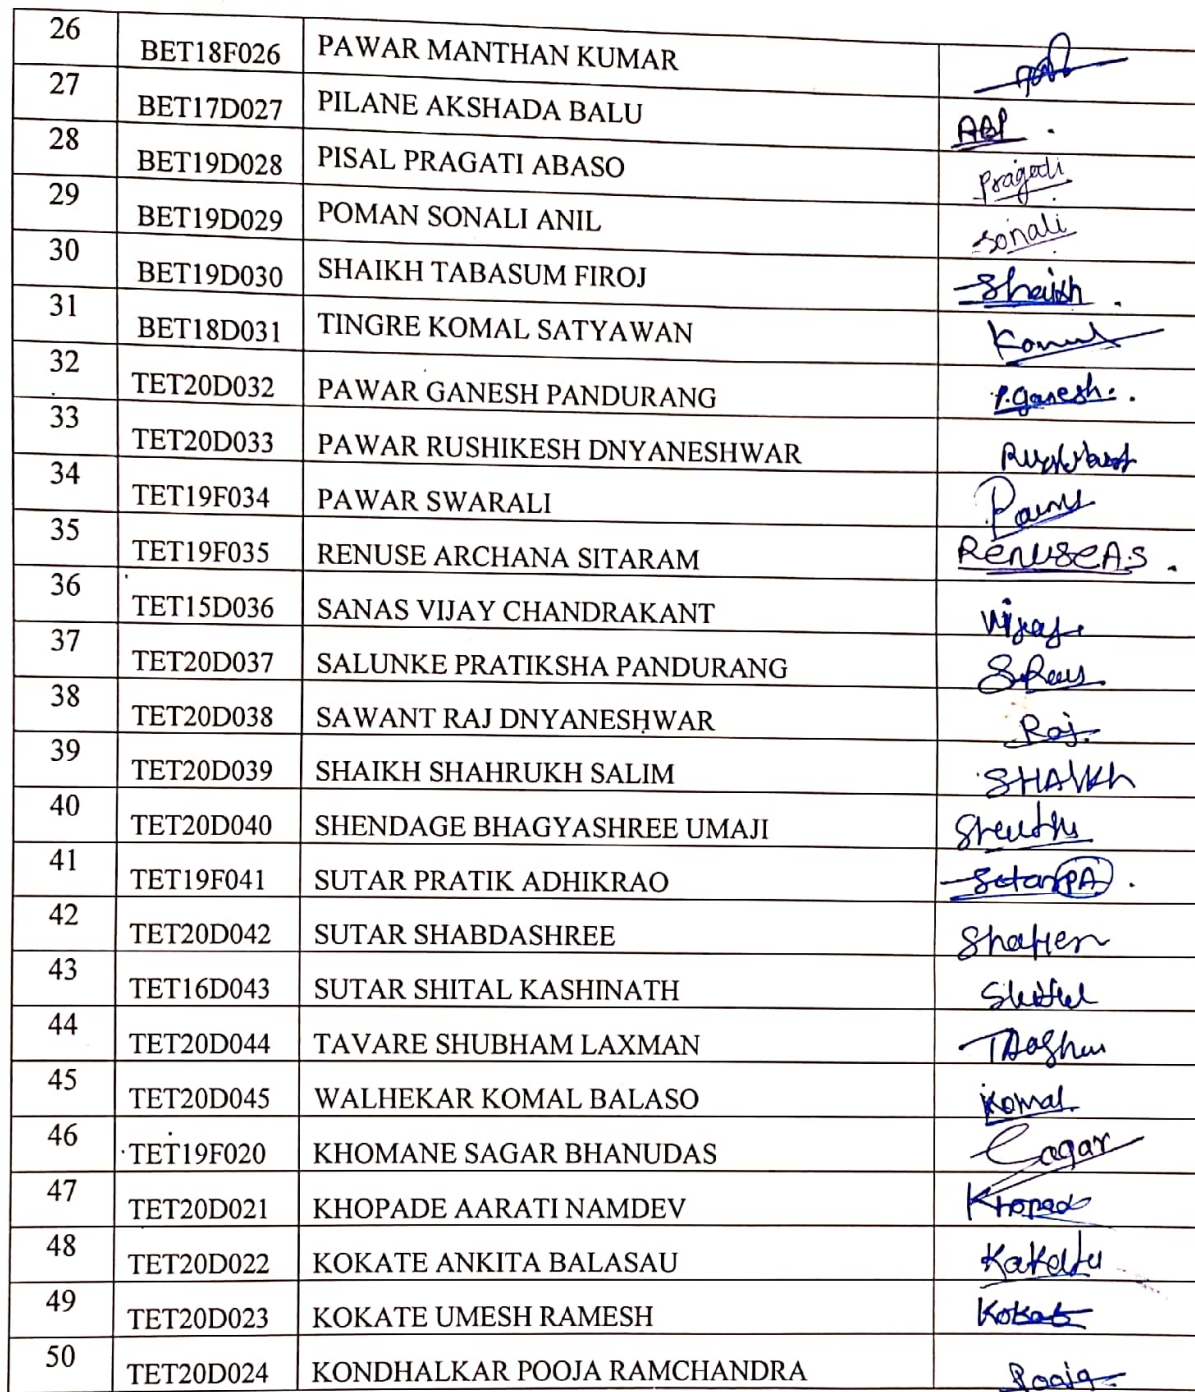 26 BET18F026 PAWAR MANTHAN KUMAR
27 BET17D027 PILANE AKSHADA BALU ABP.
28 BET19D028 PISAL PRAGATI ABASO Pragati
29 BET19D029 POMAN SONALI ANIL Sonali
30 BET19D030 SHAIKH TABASUM FIROJ Shaikh.
31 BET18D031 TINGRE KOMAL SATYAWAN Komal
32 TET20D032 PAWAR GANESH PANDURANG P.ganesh..
33 TET20D033 PAWAR RUSHIKESH DNYANESHWAR
34 TET19F034 PAWAR SWARALI
35 TET19F035 RENUSE ARCHANA SITARAM RENUSEAS.
36 TET15D036 SANAS VIJAY CHANDRAKANT Vijay.
37 TET20D037 SALUNKE PRATIKSHA PANDURANG
38 TET20D038 SAWANT RAJ DNYANESHWAR Raj.
39 TET20D039 SHAIKH SHAHRUKH SALIM SHAIKH
40 TET20D040 SHENDAGE BHAGYASHREE UMAJI
41 TET19F041 SUTAR PRATIK ADHIKRAO Sutar PA.
42 TET20D042 SUTAR SHABDASHREE
43 TET16D043 SUTAR SHITAL KASHINATH
44 TET20D044 TAVARE SHUBHAM LAXMAN
45 TET20D045 WALHEKAR KOMAL BALASO Komal.
46 TET19F020 KHOMANE SAGAR BHANUDAS Sagar
47 TET20D021 KHOPADE AARATI NAMDEV Khopade
48 TET20D022 KOKATE ANKITA BALASAU
49 TET20D023 KOKATE UMESH RAMESH Kokate
50 TET20D024 KONDHALKAR POOJA RAMCHANDRA Pooja